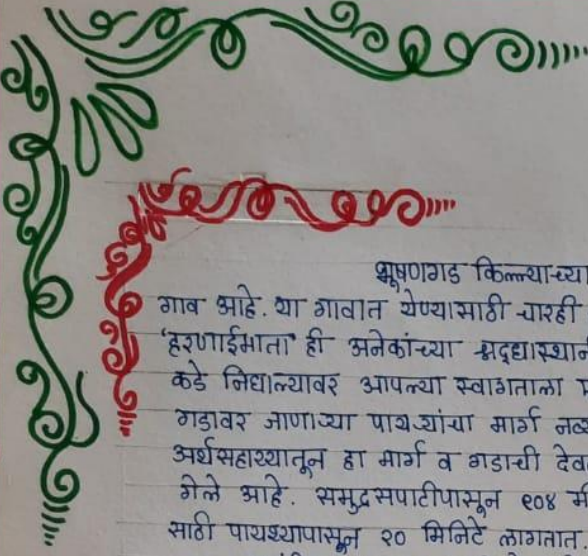 भूषणगड किल्ल्याच्या
गाव आहे. या गावात येण्यासाठी चारही
'हरणाईमाता' ही अनेकांच्या श्रद्धास्थान
कडे निघाल्यावर आपल्या स्वागताला
गडावर जाणाऱ्या पायऱ्यांचा मार्ग
अर्थसहाय्यातून हा मार्ग व गडाची
गेले आहे. समुद्रसपाटीपासून ९०४
साठी पायथ्यापासून २० मिनिटे लागतात.